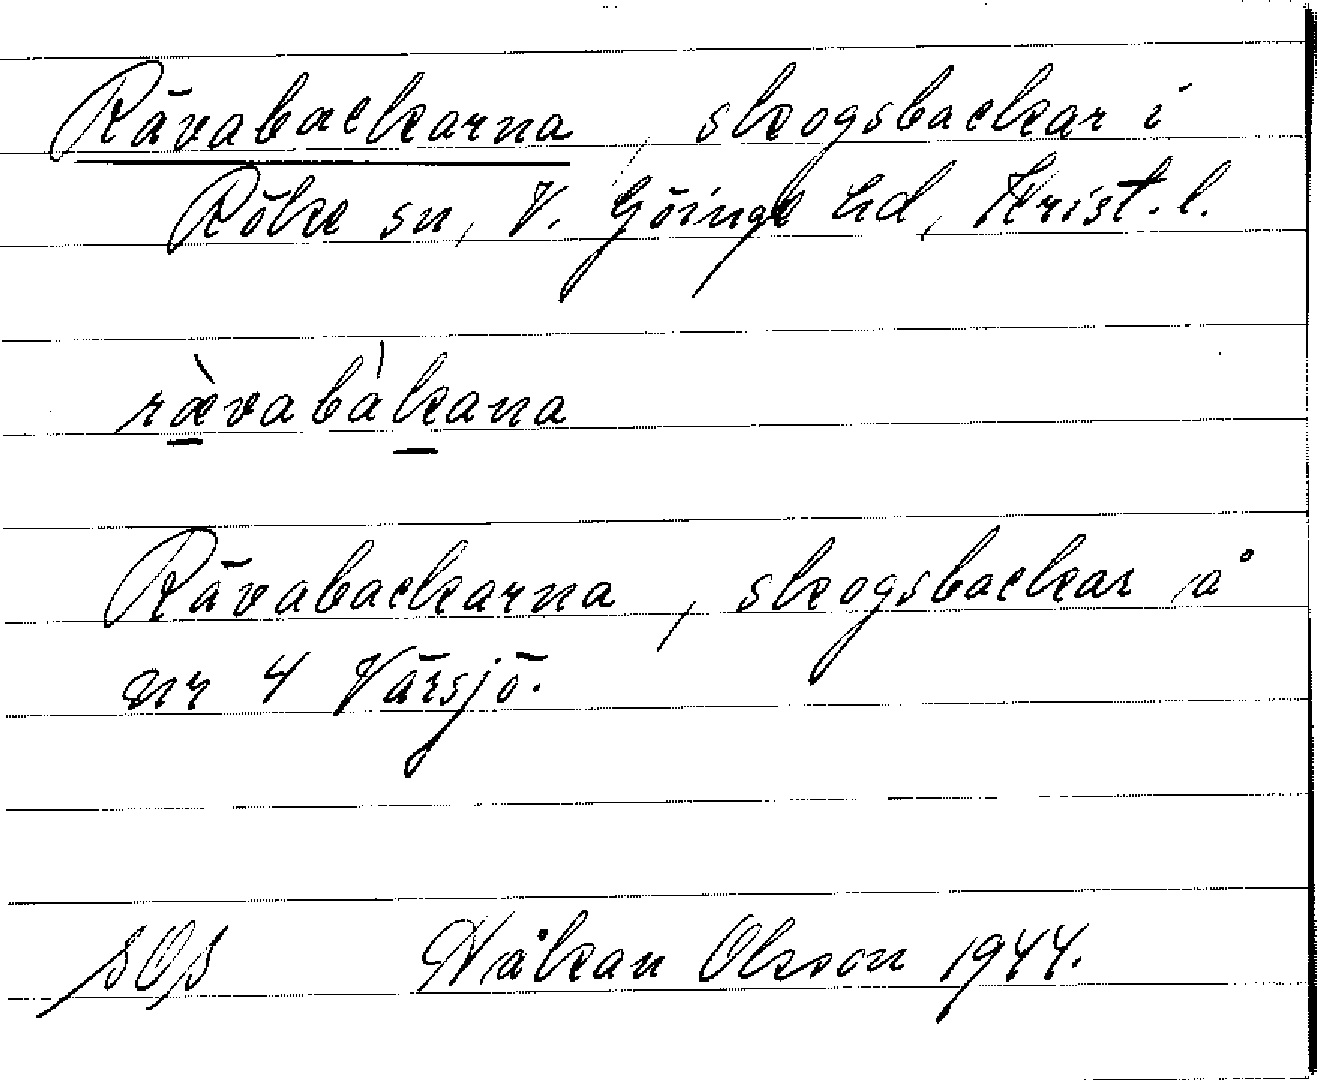 Rävabackarna, skogsbackar i
Röke sn, V. Göinge hd, Krist. l.
rævabàkana
Rävabackarna, skogsbackar å
nr 4 Värsjö.
SOS Håkan Olsson 1944.